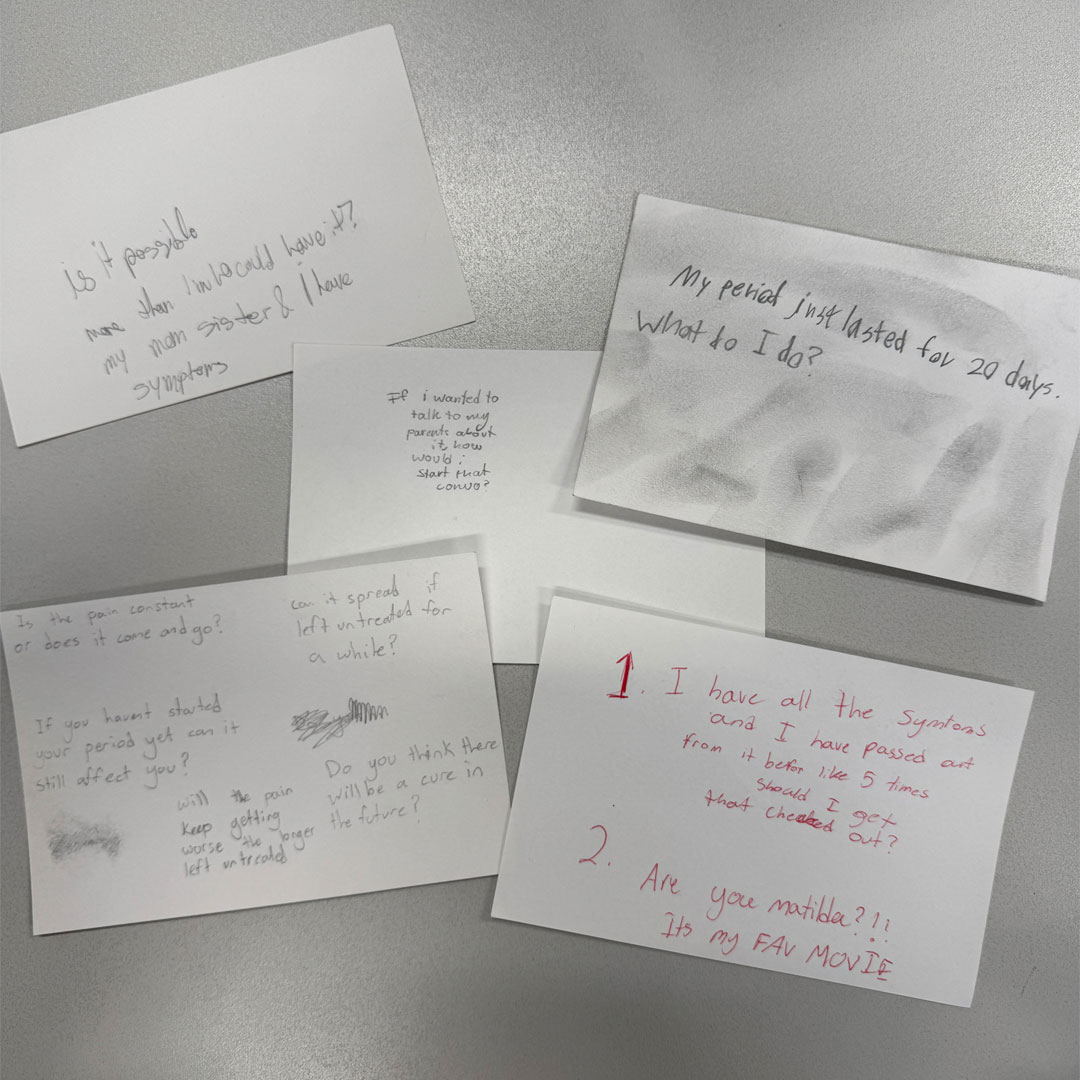 is it possible
more than 1 in 10 could have it?
my mom sister & I have
symptoms
My period just lasted for 20 days.
What do I do?
If i wanted to
talk to my
parents about
it how
would i
start that
convo?
Is the pain constant
or does it come and go?
can it spread if
left untreated for
a while?
If you havent started
your period yet can it
still affect you?
Do you think there
will be a cure in
the future?
will the pain
keep getting
worse the longer
left untreated
1. I have all the symtoms
and I have passed out
from it befor like 5 times
should I get
that checked out?
2. Are you matilda?!!
Its my FAV MOVIE